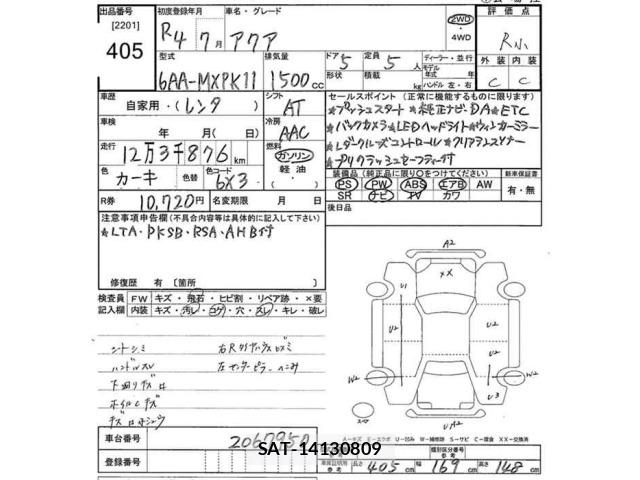 出品番号 初度登録年月 車名・グレード 評価点
[2201] 405 R4年7月 アクア 2WD ・ 4WD R小
型式 排気量 ドア 定員 ディーラー・並行 外装 内装
6AA-MXPK11 1500cc 5 5人 モデル年式 年
形状 積載 kg ハンドル 左・右 C C
車歴 シフト セールスポイント (正常に機能するものに限ります)
自家用・(レンタ) AT ★プッシュスタート★純正ナビ・DA★ETC
車検 冷房 ★バックカメラ★LEDヘッドライト★ウィンカーミラー
年 月(日) AAC ★レーダークルーズコントロール★クリアランスソナー
走行 燃料 ★プリクラッシュセーフティ付
12万3千876km ガソリン 装備品 (純正品に限り○をつけてください) 新車保証書
色 色替 色コード 軽油 PS PW ABS エアB AW 有・無
カーキ 6X3 SR ナビ TV カワ
R券 10,720円 名変期限 年 月 後日品
注意事項申告欄 (不具合内容等は具体的に記入して下さい)
★LTA・PKSB・RSA・AHB付
A2
XX
U1
U2 U2
U2
U2
W2 W2
U3
UA2
修復歴 有 〔箇所 〕
検査員 FW キズ・飛石・ヒビ割・リペア跡・×要
記入欄 内装 キズ・汚レ・コゲ・穴・スレ・キレ・破レ
シートシミ
ハンドルスレ
下回りサビ
ホイルキズ
車台番号 2067950
登録番号
A-キズ E-エクボ U-凹み W-補修跡 S-サビ C-腐食 XX-交換済
類別区分番号 参考
車庫証明用 参考 長さ 405cm 幅 169cm 高さ 148cm
SAT-14130809